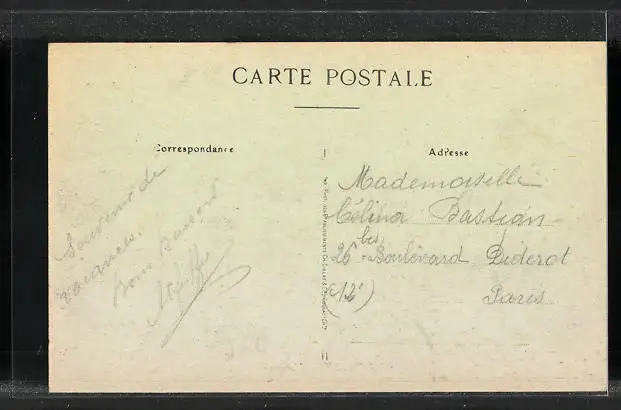 CARTE POSTALE
Correspondance
Adresse
Souvenir de
vacances.
Bons baisers
Mademoiselle
Célina Bastian
26 bis Boulevard Diderot
(12e)
Paris